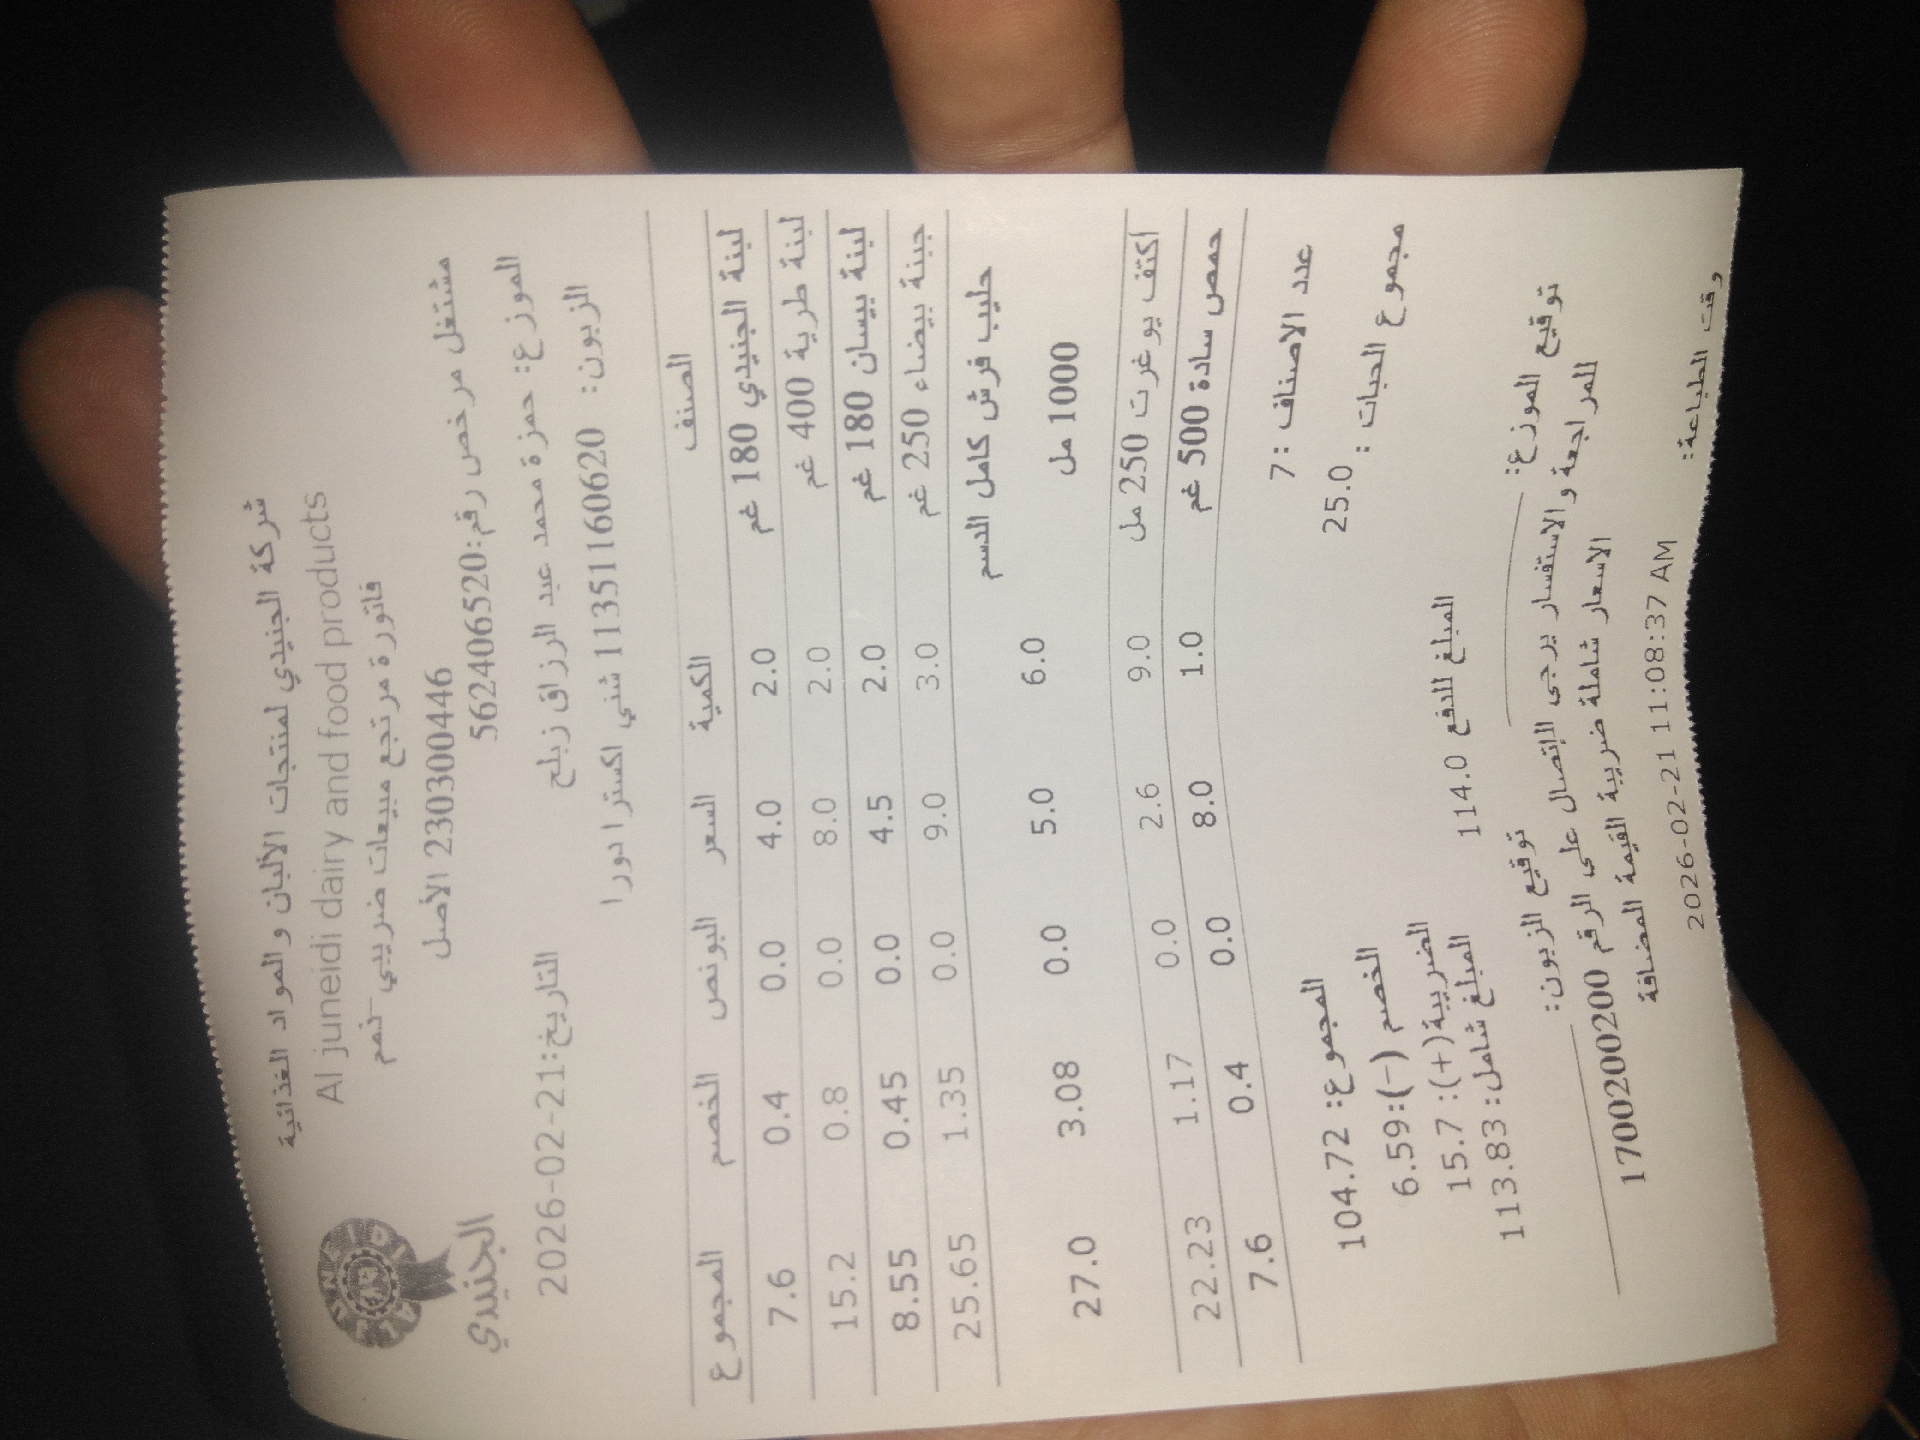 شركة الجنيدي لمنتجات الألبان والمواد الغذائية
Al juneidi dairy and food products
فاتورة مرتجع مبيعات ضريبي - ذمم
230300446 الأصل
JUNEIDI
الجنيدي
مشتغل مرخص رقم:562406520
الموزع: حمزة محمد عبد الرزاق زبلح
التاريخ:2026-02-21
الزبون: 11351160620 شني اكسترا دورا
الصنف الكمية السعر البونص الخصم المجموع
لبنة الجنيدي 180 غم 2.0 4.0 0.0 0.4 7.6
لبنة طرية 400 غم 2.0 8.0 0.0 0.8 15.2
لبنة بيسان 180 غم 2.0 4.5 0.0 0.45 8.55
جبنة بيضاء 250 غم 3.0 9.0 0.0 1.35 25.65
حليب فرش كامل الدسم
1000 مل 6.0 5.0 0.0 3.08 27.0
اكتف يوغرت 250 مل 9.0 2.6 0.0 1.17 22.23
حمص سادة 500 غم 1.0 8.0 0.0 0.4 7.6
عدد الاصناف : 7
المجموع: 104.72
مجموع الحبات : 25.0
الخصم (-):6.59
الضريبة(+): 15.7
المبلغ شامل: 113.83
المبلغ للدفع 114.0
توقيع الموزع:
توقيع الزبون:
للمراجعة والاستفسار يرجى الإتصال على الرقم 1700200200
الاسعار شاملة ضريبة القيمة المضافة
وقت الطباعة:
2026-02-21 11:08:37 AM